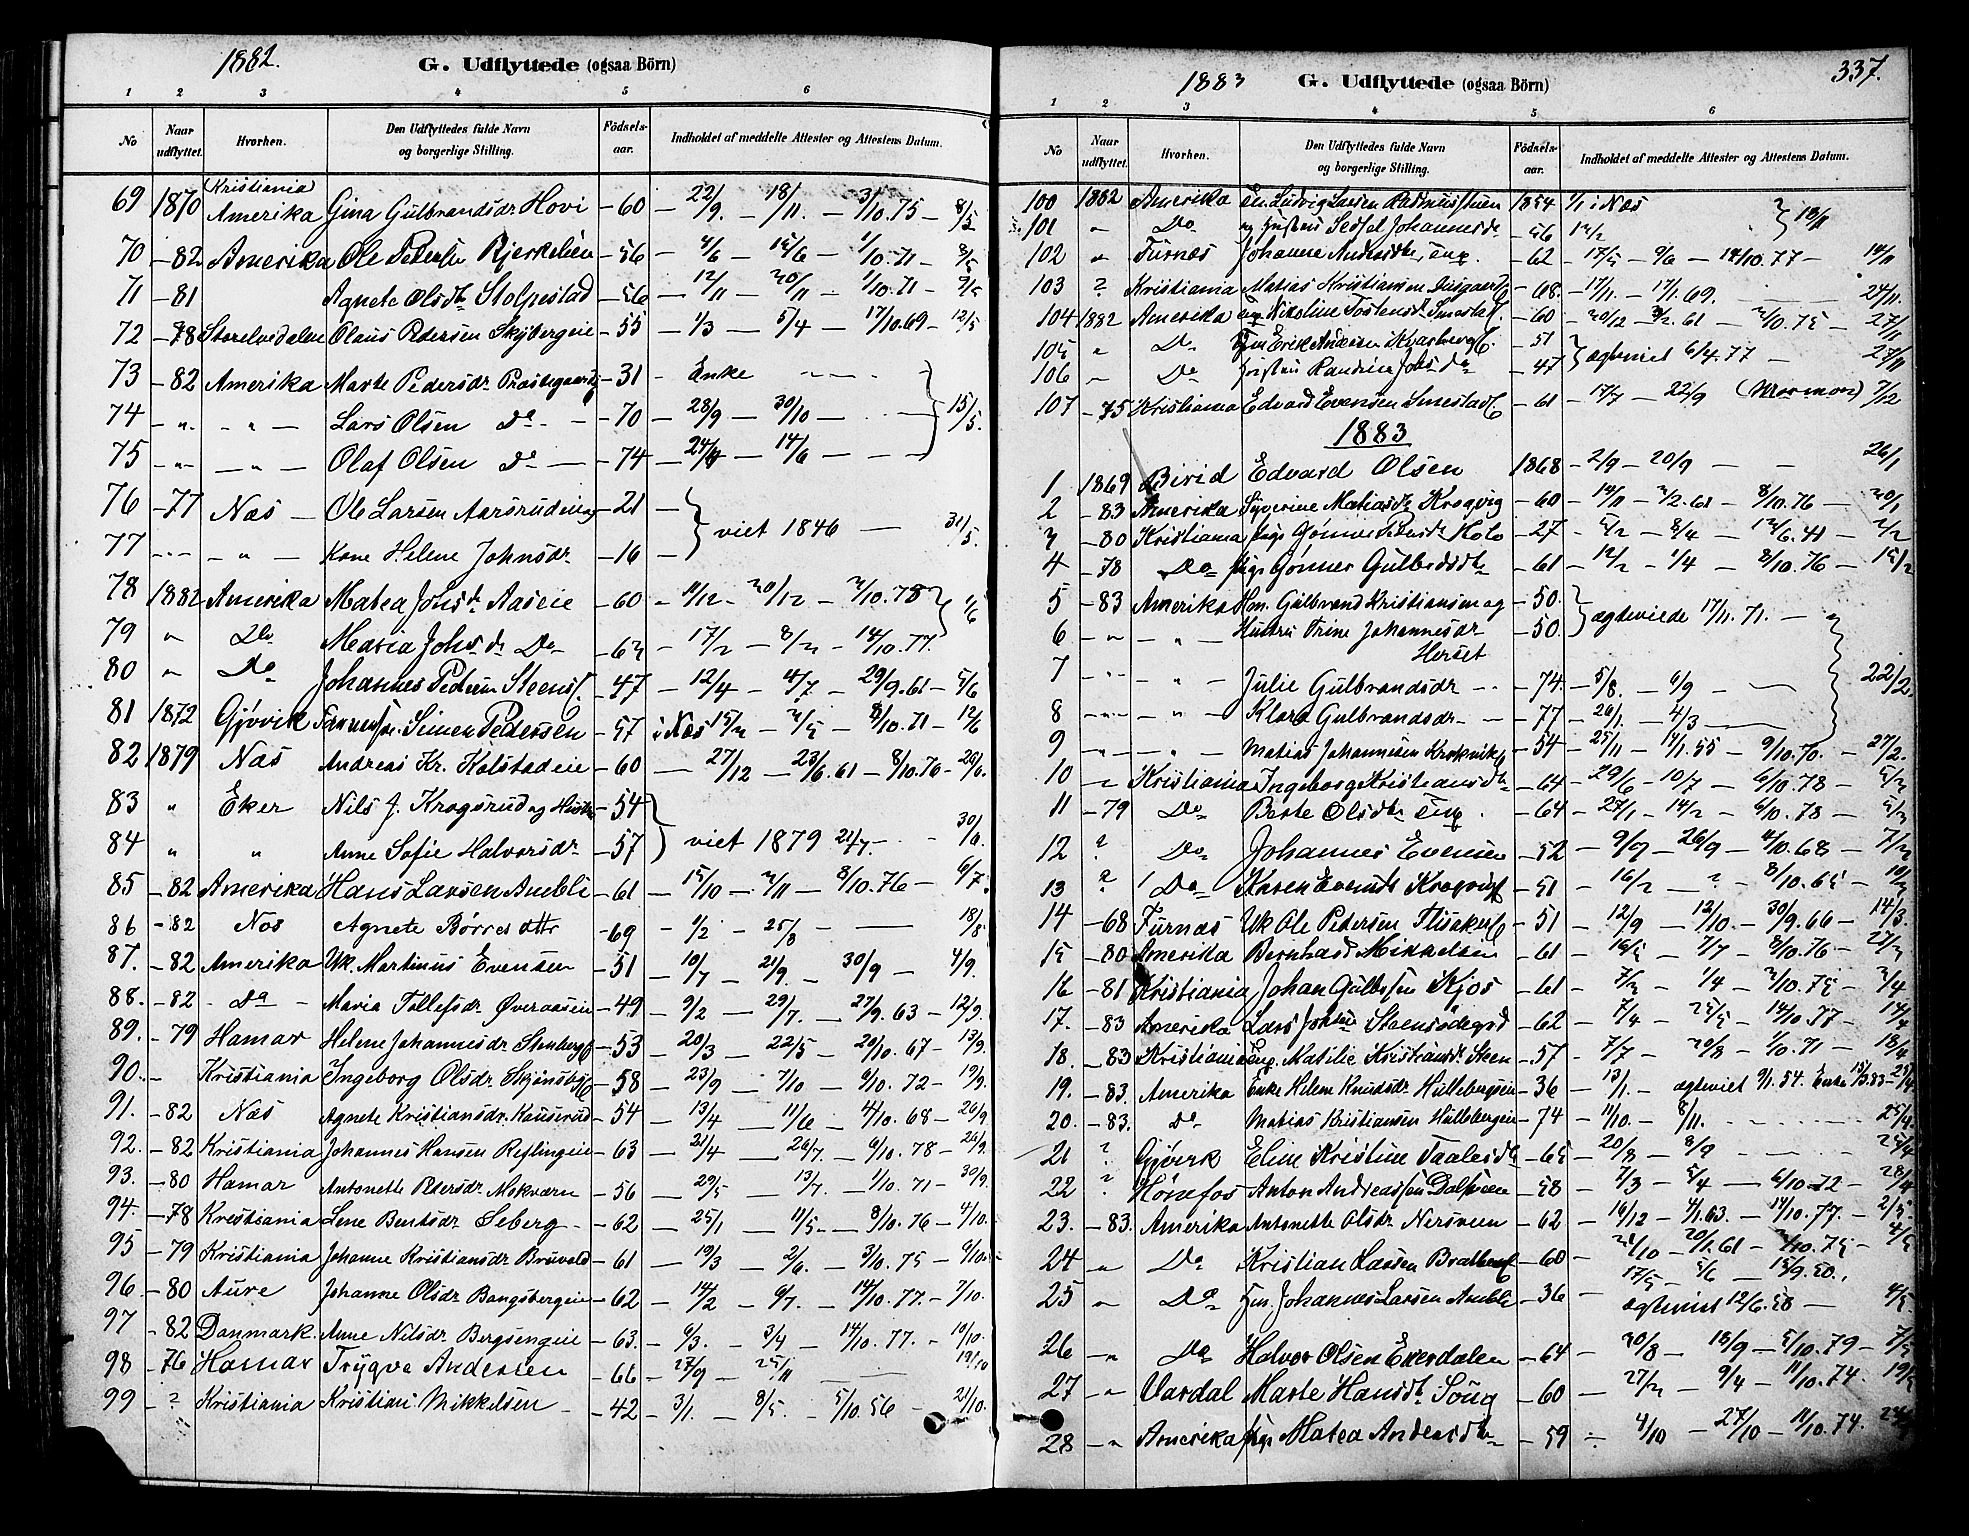 1882.
G. Udflyttede (ogsaa Börn)
1 2 3 4 5 6
No | Naar udflyttet. | Hvorhen. | Den Udflyttedes fulde Navn og borgerlige Stilling. | Födsels-aar. | Indholdet af meddelte Attester og Attestens Datum.
(Kristiania)
69 1870 Amerika Gina Gulbrandsdr. Hovi – 60 – 22/9. – 18/11. – 31/10. 75 – 8/5
70 – 82 Amerika Ole Peders. Bjerkelien – 56 – 4/6 – 15/6 – 1/10. 71 – 8/5
71 – 81 Agnete Olsdtr. Stolpestad – 56 – 12/11 – 20/11 – 1/10. 71 – 9/5
72 – 78 Storelvedalen Olaus Pedersen Skybergeie – 55 – 1/3 – 5/4 – 17/10. 69 – 12/5
73 – 82 Amerika Marte Pedersdr. – 31 – Enke
74 – " – – " – Lars Olsen Do – 70 – 28/9 – 30/10 – 15/5.
75 – " – – " – Olaf Olsen Do – 74 – 24/ – 14/6 –
76 – 77 Næs – Ole Larsen Aasrudeie – 21 –
77 – " – – " – Kone Helene Johnsdr. – 16 – viet 1846 – 31/5.
78 1882 Amerika Matea Johsdr. Aaseie – 60 – 11/12 – 20/12 – 2/10. 78
79 " Do Maria Johs.dr. Do – 63 – 17/2 – 8/2 – 14/10. 77. 1/6
80 " Do Johannes Peders. Steens – 47 – 12/4 – 4/7 – 29/9. 61 – 5/6
81 1872 Gjövik Simen Pedersen – 57 i Næs 15/2 – 2/5 – 8/10. 71 – 12/6
82 1879 Næs Andreas Kr. Holstadeie – 60 – 27/12 – 23/6. 61 – 8/10. 76 – 26/6.
83 " Eker Nils J. Krogsrud og Hustru – 54
84 " " Anne Sofie Halvorsdr. – 57 viet 1879 21/7. – 30/6.
85 – 82 Amerika Hans Larsen Ambli – 61 – 15/10 – 2/11 – 8/10. 76 – 6/7.
86 – 82 Næs Agnete Börresdtr – 69 – 1/2 – 25/8 – – 18/8
87. – 82 Amerika Uk. Martinus Evensen – 51 – 10/7 – 21/9. – 30/9 – 4/9.
88. – 82 – Do – Maria Tollefsdr. Överaasen – 49 – 9/2 – 29/7. – 27/9. 63 – 12/9.
89. – 79 Hamar Helene Johannesdr. Stenberg – 53 – 20/3 – 22/5 – 20/10. 67 – 13/9.
90. – Kristiania Ingeborg Olsdr. Skjönsby – 58 – 23/9 – 7/10 – 6/10. 72 – 19/9.
91. – 82 Næs Agnete Kristiansdr. Kauserud – 54 – 13/4 – 11/6 – 4/10. 68 – 26/9.
92. – 82 Kristiania Johannes Hansen Reflingeie – 63 – 21/4 – 26/7. – 6/10. 78 – 26/9.
93. – 80 Hamar Antonette Pedersdr. Mokværn – 56 – 29/5 – 13/7. – 1/10. 71 – 30/9.
94. – 78 Kristiania Lene Berntsdr. Seberg – 62 – 25/1 – 11/5 – 8/10. 76 – 4/10.
95 – 79 Kristiania Johanne Kristiansdr. Bruvold – 61 – 19/3 – 2/6. – 3/10. 75 – 6/10.
96 – 80 Aure Johanne Olsdr. Bangsbergeie – 62 – 14/2 – 6/7. – 14/10. 77. – 7/10.
97 – 82 Danmark. Anne Nilsdr. Bergsengeie – 63. – 6/3. – 3/4 – 14/10. 77. – 10/10.
98 – 76 Hamar Trygve Andersen – 66 – 27/9 – 25/11 – – 19/10
99 – ? Kristiania Kristian Mikkelsen – 42 – 3/1. – 8/5. – 5/10. 56 – 21/10.
1883
G. Udflyttede (ogsaa Börn)
337.
1 2 3 4 5 6
No | Naar udflyttet. | Hvorhen. | Den Udflyttedes fulde Navn og borgerlige Stilling. | Födsels-aar. | Indholdet af meddelte Attester og Attestens Datum.
100 1882 Amerika Em. Ludvig Larsen Rasmusstuen 1854 1/1 i Næs
101 " Do og Hustru Sedsel Johannesdr. – 56 12/2 18/11
102 " Furnæs Johanne Andersdtr. – 62 – 17/5 – 9/6 – 14/10. 77 – 14/11
103 ? Kristiania Matias Kristiansen – 68. – 17/11. – 17/1. 69. 24/11.
104 1882 Amerika Nikoline Tostensdr. Smestad – 60 – 20/12 – 3/2. 61 – 2/10. 75 – 27/11
105 " Do Gm. Erik Andersen Kvarberg – 51
106 – Do Hustru Randine Johsdr. – 47 ægteviet 6/4. 77 – 27/11
107 – 75 Kristiania Edvard Evensen Smestad – 61 – 17/7 – 22/9 (Mormon) 7/12
1883
1 1869 Birid Edvard Olsen 1868 – 2/9 – 20/9 – – 26/1
2 – 83 Amerika Syverine Matiasdr. Krogvig – 60 – 14/11 – 2/2. 61 – 8/10. 76 – 20/1
3 – 80 Kristiania Pige Gönner Pedersdr. Kolo – 27 – 5/2 – 8/4 – 12/6. 41 – 2/2
4 – 78 Do Pige Gönner Gulbrdsdtr. – 61 – 12/2 – 1/4 – 8/10. 76 – 15/2
5 – 83 Amerika Hm. Gulbrand Kristiansen og – 50.
6 – " – – " – Hustru Trine Johannesdr. – 50. ægteviede 17/11. 71. –
Herset
7 – " – " – Julie Gulbrandsdr. – 74. – 5/8. – 6/9 – 22/2.
8 – " – – " – Klara Gulbrandsdr. – 77 – 26/1. – 4/3
9 – " – – " – Matias Johannesen Krokvik – 54 – 25/11 – 14/1. 55 – 9/10. 70. – 27/2.
10 – Kristiania Ingeborg Kristiansdtr. – 64 – 29/6 – 10/7 – 6/10. 78 – 5/3
11 – 79 Do Berte Olsdtr. – 64 – 27/1 – 14/2 – 6/10. 78 – 5/3
12 ? Do Johannes Evensen – 52 – 9/7 – 26/9 – 4/10. 68 – 7/3
13 ? Do Karen Evensdtr. Krogvig – 51 – 16/2 – ? – 8/10. 65 – 10/3
14 – 68 Furnæs Uk Ole Pedersen Flisaker – 51 – 12/9 – 12/10. – 30/9. 66 – 14/3.
15 – 80 Amerika Bernhard Mikkelsen – 61 – 16/5 – 7/7 – 8/10. 76 – 27/3
16 – 81 Kristiania Johan Gulbrsen Kjos – 61 – 7/3 – 1/4 – 2/10. 75 – 3/4
17. – 83 Amerika Lars Johsen Steensödegrd – 62 – 7/4 – 25/5 – 14/10. 77 – 14/4
18. – 83 Kristiania Matilie Kristiansdr. Steen – 57 – 7/7 – 20/8 – 1/10. 71 – 18/4
19. – 83. Amerika Enke Helene Knudsdr. Hullebergeie – 36 – 13/1. – ægteviet 9/1. 54. Enke 15/3. 83 – 25/4
20. – 83. Do Matias Kristiansen Hullebergeie – 74 – 11/10. – 8/11. – 25/4.
21 ? Gjövik Eline Kristine Paalsdr. – 65 – 20/8 – 8/9 – 25/4
22 ? Hönefos Anton Andreassen Dalsveen – 58 – 7/3 – 5/4 – 6/10. 72 – 28/4
23. – 83. Amerika Antonette Olsdr. Nersveen – 62 – 16/12 – 4/1. 63. – 14/10. 77. – 2/5
24 " Do Kristian Larsen Bratberg – 60 – 21/10 – 20/1. 61 – 2/10. 75 – 4/5
25 " Do Gm. Johannes Larsen Amble – 36 – 17/5 – 5/6 – 15/9. 50. ægteviet 12/6. 58 – 4/5
26 – " Do Halvor Olsen Ekerdalen – 64 – 20/8 – 18/9 – 5/10. 79 – 7/5
27 – " Vardal Marte Hansdtr. Soug – 60 – 27/2 – 9/4 – 11/10. 74. 19/5
28 – " Amerika Pige Matea Andersdtr. – 59 – 4/10 – 27/10 – 11/10. 74. 24/